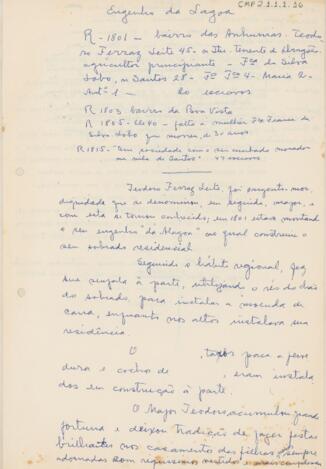 CMP 2.1.1.1.26
Engenho da Lagoa
R - 1801 - bairro das Anhumas. Teodo-
ro Ferraz Leite 45 - a Itu. Tenente d
agricultor principiante - Fca da Silva
Lobo, n Santos 28 - Fo Je 4 - Maria 2 -
Anta 1 - 20 escravos
R 1803 bairro da Boa Vista
R - 1805 - 40 - falta a mulher Fca Franca da
Silva Lobo que morreu, de 30 anos
R 1815 - "tem sociedade com o seu cunhado morador
na vila de Santos" 47 escravos
Teodoro Ferraz Leite, foi sargento-mor,
dignidade que se denominou, em seguida, major, e
com esta se tornou conhecido, em 1801 estava montando
o seu engenho "da Alagoa" no qual construiu o
seu sobrado residencial.
Seguindo o hábito regional, fez
sua senzala à parte, utilizando o rés do chão
do sobrado, para instalar a moenda de
cana, enquanto nos altos instalava sua
residência.
O , taxos para a ferve
dura e cocho de , eram instala
dos em construção à parte.
O Major Teodoro, acumulou grande
fortuna e deixou tradição de fazer festas
brilhantes nos casamentos das filhas, sempre
adornadas com riquíssimos vestidos e